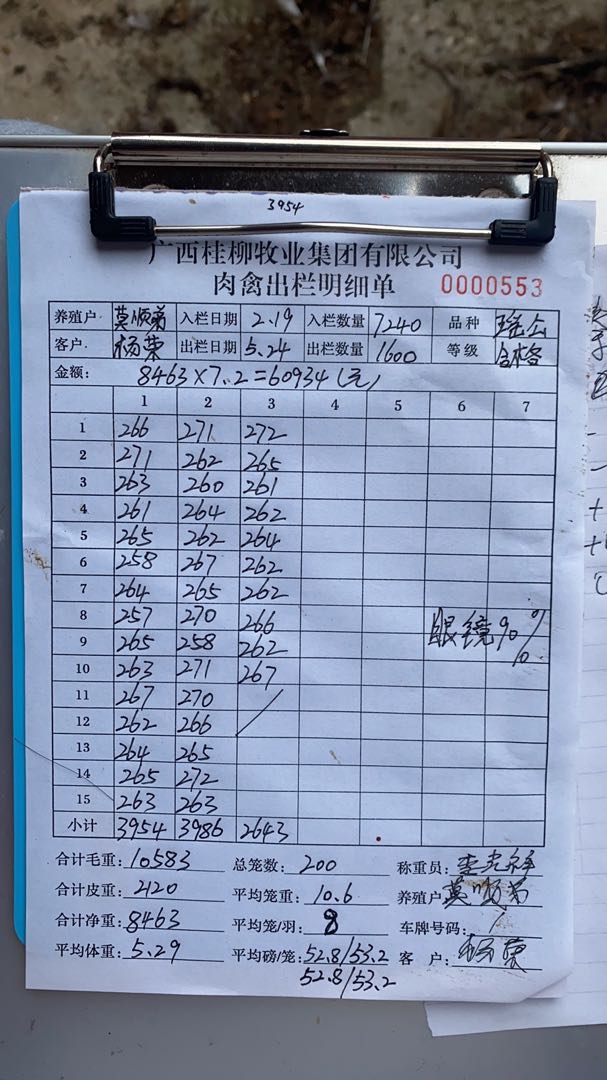 3954
广西桂柳牧业集团有限公司
肉禽出栏明细单 0000553
养殖户 莫顺弟 入栏日期 2.19 入栏数量 7240 品种 瑶公
客户 杨荣 出栏日期 5.24 出栏数量 1600 等级 合格
金额: 8463×7.2=60934(元)
1 2 3 4 5 6 7
1 266 271 272
2 271 262 265
3 263 260 261
4 261 264 262
5 265 262 264
6 258 267 262
7 264 265 262
8 257 270 266 眼镜90%
9 265 258 262
10 263 271 267
11 267 270
12 262 266
13 264 265
14 265 272
15 263 263
小计 3954 3986 2643
合计毛重: 10583 总笼数: 200 称重员:
合计皮重: 2120 平均笼重: 10.6 养殖户 莫顺弟
合计净重: 8463 平均笼/羽: 8 车牌号码: /
平均体重: 5.29 平均磅/笼: 52.8/53.2 客 户: 杨荣
52.8/53.2